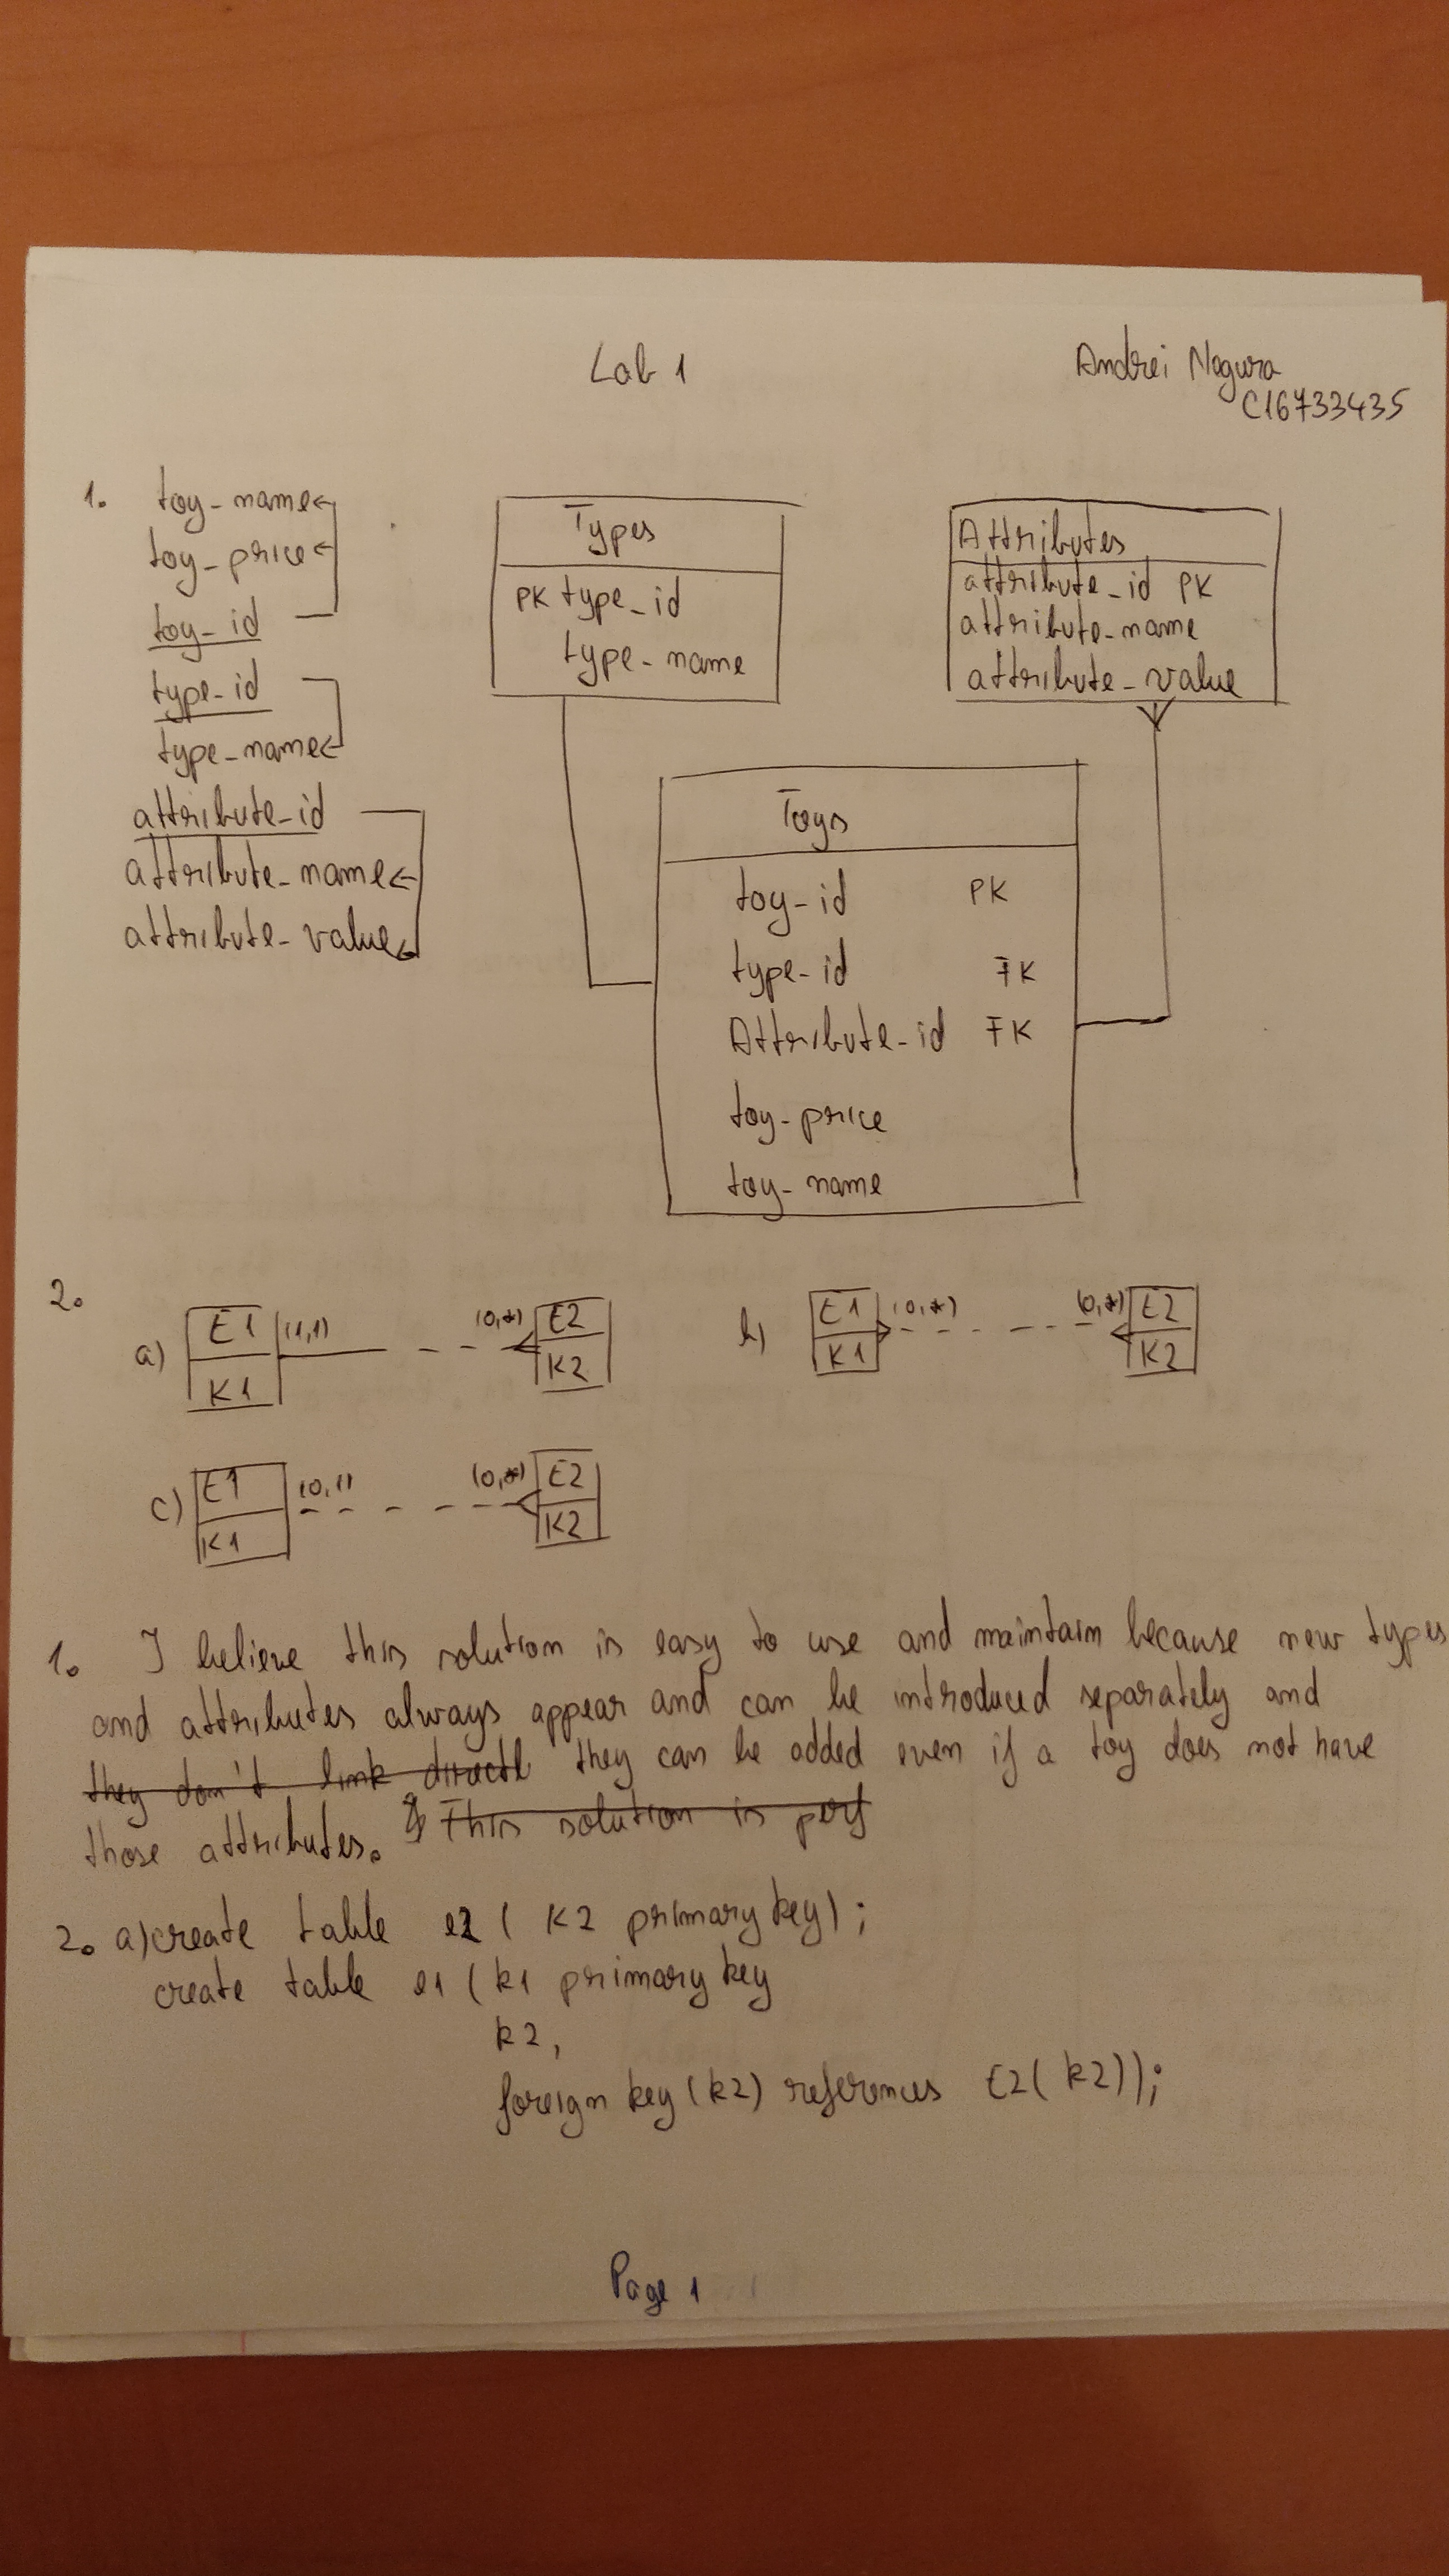 Lab 1
Andrei Nogura
C16733435
1. toy-name
toy-price
toy-id
type-id
type-name
attribute-id
attribute-name
attribute-value
Types
PK type-id
type-name
Attributes
attribute-id PK
attribute-name
attribute-value
Toys
toy-id PK
type-id FK
Attribute-id FK
toy-price
toy-name
2.
a) E1 (1,1) (0,*) E2
K1 K2
b) E1 (0,*) (0,*) E2
K1 K2
c) E1 (0,1) (0,*) E2
K1 K2
1. I believe this solution is easy to use and maintain because new types
and attributes always appear and can be introduced separately and
they don't link directl they can be added even if a toy does not have
those attributes. This solution is perf
2. a) create table e2 ( K2 primary key);
create table e1 ( k1 primary key
k2,
foreign key (k2) references E2( k2));
Page 1